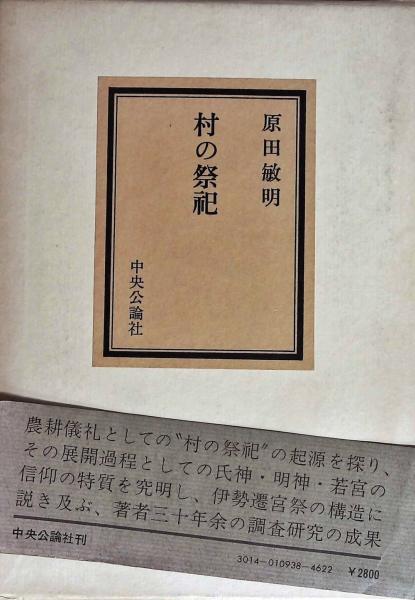 原田敏明
村の祭祀
中央公論社
農耕儀礼としての〝村の祭祀〟の起源を探り、
その展開過程としての氏神・明神・若宮の
信仰の特質を究明し、伊勢遷宮祭の構造に
説き及ぶ、著者三十年余の調査研究の成果
中央公論社刊
3014-010938-4622
￥2800